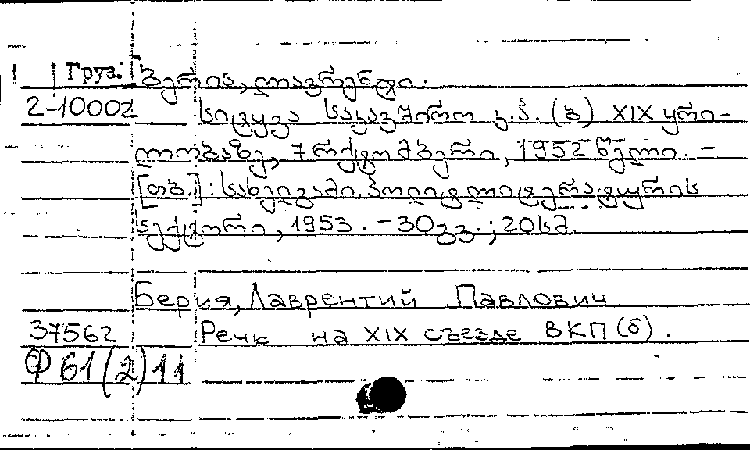 Груз. ბერია, ლავრენტი.
2-10002 სიტყვა საკავშირო კ.პ. (ბ) XIX ყრი-
ლობაზე, 7 ოქტომბერი, 1952 წელი. -
[თბ.]: სახელგამი. პოლიტლიტერატურის
სექტორი, 1953. - 30 გვ.; 20 სმ.
Берия, Лаврентий Павлович
37562 Речь на XIX съезде ВКП(б).
Ф 61(2)11